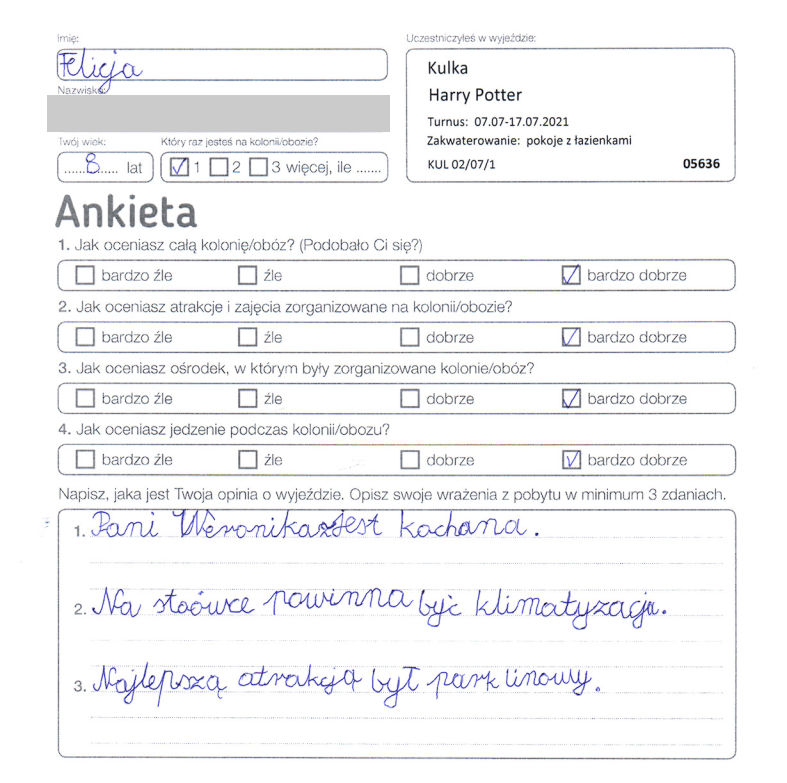 Imię:
Felicja
Nazwisko:
Twój wiek:
8 lat
Który raz jesteś na kolonii/obozie?
1 2 3 więcej, ile .......
Uczestniczyłeś w wyjeździe:
Kulka
Harry Potter
Turnus: 07.07-17.07.2021
Zakwaterowanie: pokoje z łazienkami
KUL 02/07/1 05636
Ankieta
1. Jak oceniasz całą kolonię/obóz? (Podobało Ci się?)
bardzo źle źle dobrze bardzo dobrze
2. Jak oceniasz atrakcje i zajęcia zorganizowane na kolonii/obozie?
bardzo źle źle dobrze bardzo dobrze
3. Jak oceniasz ośrodek, w którym były zorganizowane kolonie/obóz?
bardzo źle źle dobrze bardzo dobrze
4. Jak oceniasz jedzenie podczas kolonii/obozu?
bardzo źle źle dobrze bardzo dobrze
Napisz, jaka jest Twoja opinia o wyjeździe. Opisz swoje wrażenia z pobytu w minimum 3 zdaniach.
1. Pani Weronika jest kochana.
2. Na stoówce powinna być klimatyzacja.
3. Najlepszą atrakcją był park linowy.